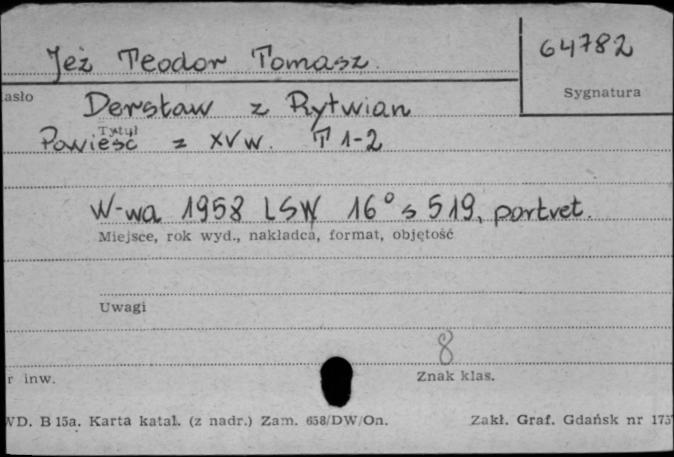 Jeż Teodor Tomasz.
64782
Sygnatura
asło
Dersław z Rytwian
Tytuł
Powieść z XV w. T 1-2
W-wa 1958 LSW 16° s 519, portret.
Miejsce, rok wyd., nakładca, format, objętość
Uwagi
8
r inw.
Znak klas.
WD. B 15a. Karta katal. (z nadr.) Zam. 658/DW/On.
Zakł. Graf. Gdańsk nr 175